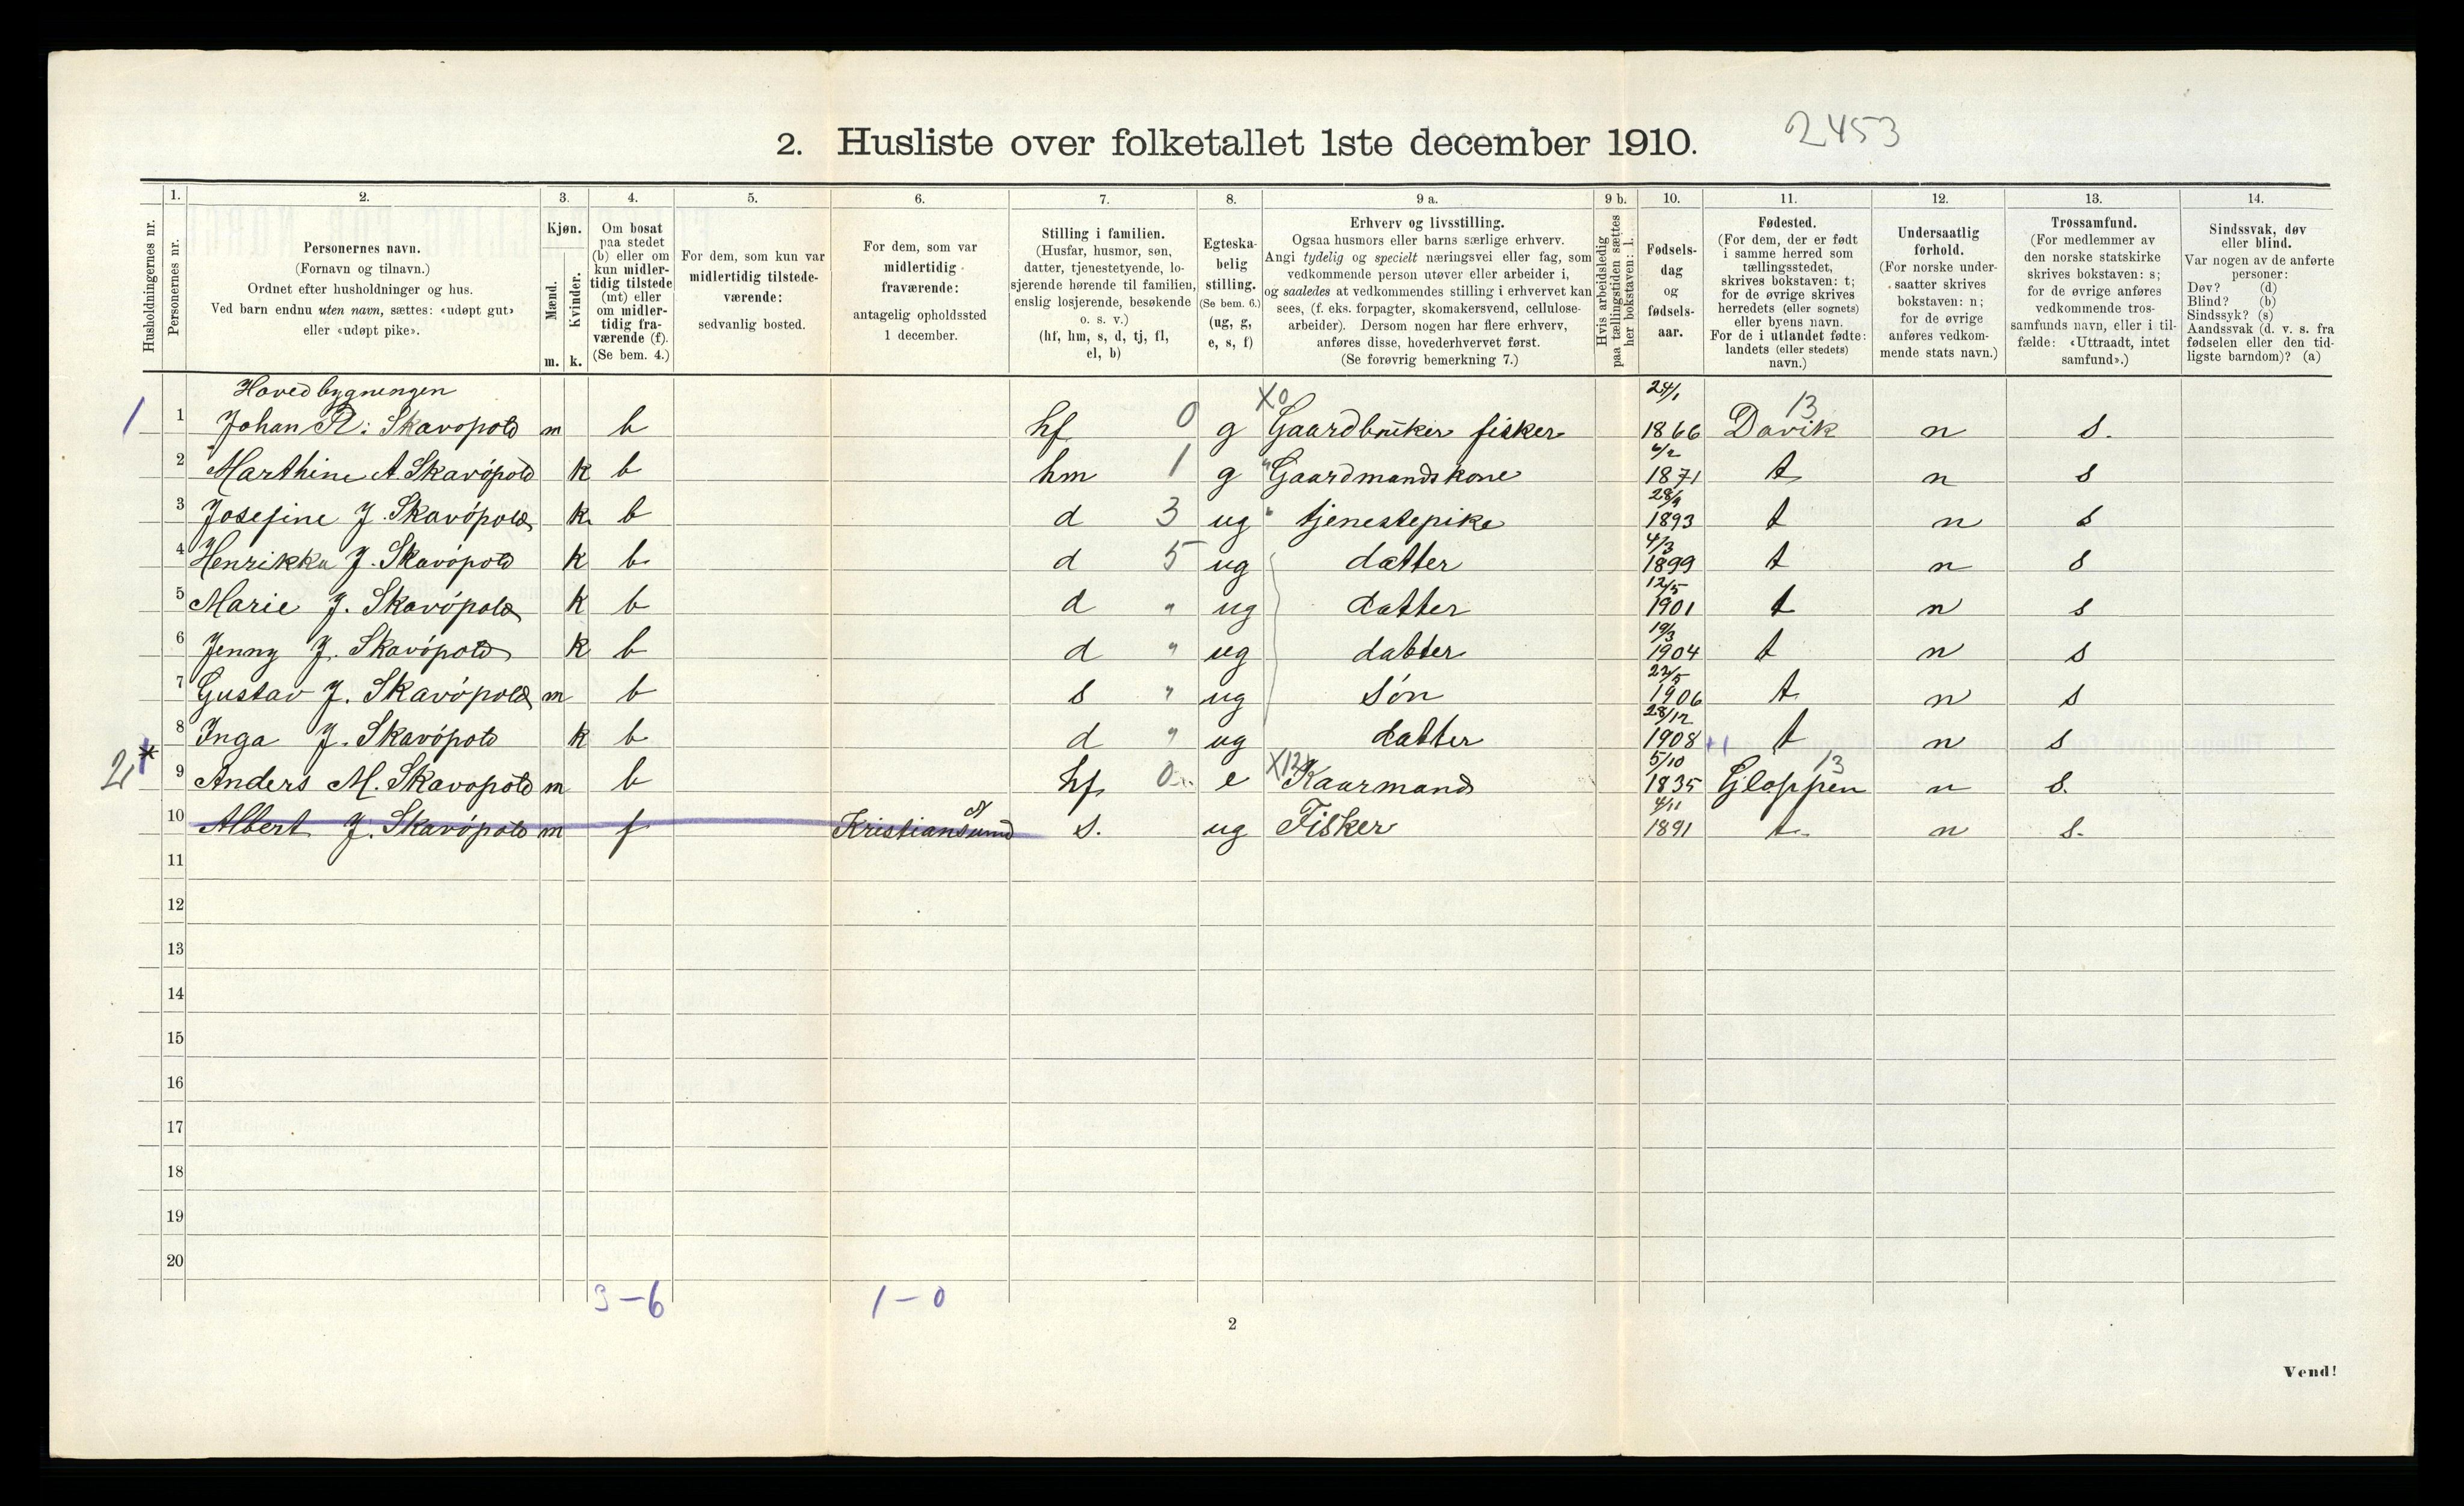 2. Husliste over folketallet 1ste december 1910.
2453
Husholdningernes nr.
1.
Personernes nr.
2.
Personernes navn.
(Fornavn og tilnavn.)
Ordnet efter husholdninger og hus.
Ved barn endnu uten navn, sættes: «udøpt gut»
eller «udøpt pike».
3.
Kjøn.
Mænd.
Kvinder.
m. k.
4.
Om bosat
paa stedet
(b) eller om
kun midler-
tidig tilstede
(mt) eller
om midler-
tidig fra-
værende (f).
(Se bem. 4.)
5.
For dem, som kun var
midlertidig tilstede-
værende:
sedvanlig bosted.
6.
For dem, som var
midlertidig
fraværende:
antagelig opholdssted
1 december.
7.
Stilling i familien.
(Husfar, husmor, søn,
datter, tjenestetyende, lo-
sjerende hørende til familien,
enslig losjerende, besøkende
o. s. v.)
(hf, hm, s, d, tj, fl,
el, b)
8.
Egteska-
belig
stilling.
(Se bem. 6.)
(ug, g,
e, s, f)
9 a.
Erhverv og livsstilling.
Ogsaa husmors eller barns særlige erhverv.
Angi tydelig og specielt næringsvei eller fag, som
vedkommende person utøver eller arbeider i,
og saaledes at vedkommendes stilling i erhvervet kan
sees, (f. eks. forpagter, skomakersvend, cellulose-
arbeider). Dersom nogen har flere erhverv,
anføres disse, hovederhvervet først.
(Se forøvrig bemerkning 7.)
9 b.
Hvis arbeidsledig
paa tællingstiden sættes
her bokstaven: l.
10.
Fødsels-
dag
og
fødsels-
aar.
11.
Fødested.
(For dem, der er født
i samme herred som
tællingsstedet,
skrives bokstaven: t;
for de øvrige skrives
herredets (eller sognets)
eller byens navn.
For de i utlandet fødte:
landets (eller stedets)
navn.)
12.
Undersaatlig
forhold.
(For norske under-
saatter skrives
bokstaven: n;
for de øvrige
anføres vedkom-
mende stats navn.)
13.
Trossamfund.
(For medlemmer av
den norske statskirke
skrives bokstaven: s;
for de øvrige anføres
vedkommende tros-
samfunds navn, eller i til-
fælde: «Uttraadt, intet
samfund».)
14.
Sindssvak, døv
eller blind.
Var nogen av de anførte
personer:
Døv? (d)
Blind? (b)
Sindssyk? (s)
Aandssvak (d. v. s. fra
fødselen eller den tid-
ligste barndom)? (a)
Hovedbygningen
1 1 Johan R: Skavøpold m b hf 0 g X0 Gaardbruker fisker 24/1 1866 Davik 13 n s.
2 Marthine A. Skavøpold k b hm 1 g " Gaardmandskone 6/2 1871 t n s
3 Josefine J. Skavøpold k b d 3 ug " tjenestepike 28/9 1893 t n s
4 Henrikka J. Skavøpold k b d 5 ug datter 4/3 1899 t n s
5 Marie J. Skavøpold k b d " ug datter 12/5 1901 t n s
6 Jenny J. Skavøpold k b d " ug datter 19/3 1904 t n s
7 Gustav J. Skavøpold m b s " ug søn 22/5 1906 t n s
8 Inga J. Skavøpold k b d " ug datter 28/12 1908 t n s
2 * 9 Anders M. Skavøpold m b hf 0 e X12 Kaarmand 5/10 1835 Gloppen 13 n s.
10 Albert J. Skavøpold m f Kristiansund N s. ug Fisker 4/11 1891 t n s.
11
12
13
14
15
16
17
18
19
20
3-6 1-0
2
Vend!